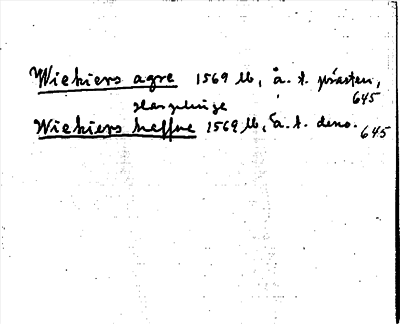 Wiekiers agre 1569 lb, å. t. prästen,
645
Wiekiers heffne 1569 lb, å. t. dens. 645